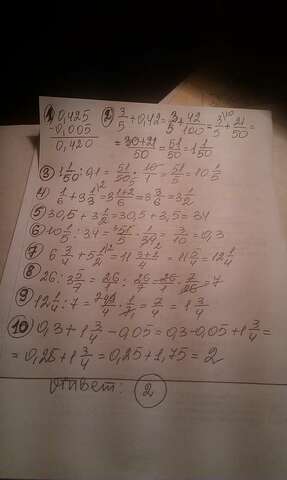 1) 0,425 - 0,005 = 0,420
2) 3/5 + 0,42 = 3/5 + 42/100 = 3/5 \10 + 21/50 =
= 30+21/50 = 51/50 = 1 1/50
3) 1 1/50 : 0,1 = 51/50 · 10/1 = 51/5 = 10 1/5
4) 1/6 + 3 1/3 \2 = 3 1+2/6 = 3 3/6 = 3 1/2
5) 30,5 + 3 1/2 = 30,5 + 3,5 = 34
6) 10 1/5 : 34 = 51/5 · 1/34 = 3/10 = 0,3
7) 6 3/4 + 5 1/2 \2 = 11 3+2/4 = 11 5/4 = 12 1/4
8) 26 : 3 5/7 = 26/1 : 26/7 = 26/1 · 7/26 = 7
9) 12 1/4 : 7 = 49/4 · 1/7 = 7/4 = 1 3/4
10) 0,3 + 1 3/4 - 0,05 = 0,3 - 0,05 + 1 3/4 =
= 0,25 + 1 3/4 = 0,25 + 1,75 = 2
ответ: 2